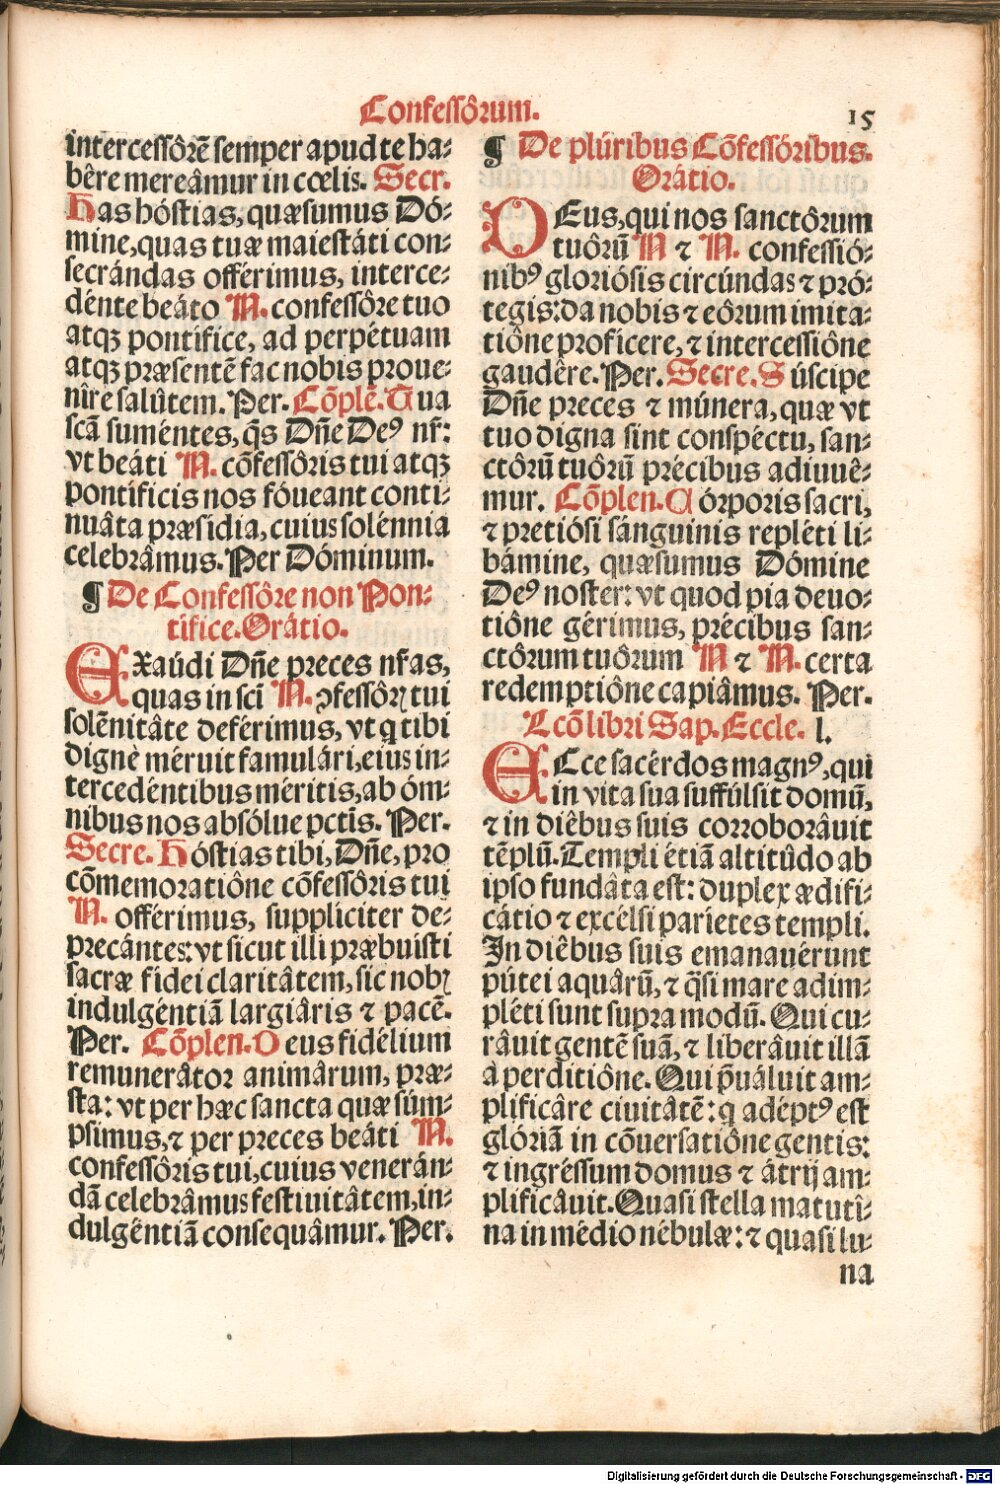 Confessôrum.
15
intercessôrē semper apud te ha⸗
bêre mereâmur in cœlis. Secr.
Has hóstias, quæsumus Dó⸗
mine, quas tuæ maiestáti con⸗
secrándas offérimus, interce⸗
dénte beáto N. confessôre tuo
atqꝫ pontífice, ad perpétuam
atqꝫ præsentē fac nobis proue⸗
nîre salûtem. Per. Cōplē. Qua
scā suméntes, q̄s Dn̄e Deꝰ nr̄:
vt beáti N. cōfessôris tui atqꝫ
pontíficis nos fóueant conti⸗
nuâta præsídia, cuius solénnia
celebrâmus. Per Dóminum.
¶ De Confessôre non Pon⸗
tífice. Orátio.
EXaúdi Dn̄e preces nr̄as,
quas in scī N. ꝯfessôrꝭ tui
solēnitâte deférimus, vt q tibi
dignè méruit famulári, eius in⸗
tercedéntibus méritis, ab óm⸗
nibus nos absólue pctīs. Per.
Secre. Hóstias tibi, Dn̄e, pro
cōmemoratiône cōfessôris tui
N. offérimus, supplíciter de⸗
precántes: vt sicut illi præbuisti
sacræ fidei claritâtem, sic nobꝭ
indulgéntiā largiâris ⁊ pacē.
Per. Cōplen. Deus fidélium
remunerâtor animârum, præ⸗
sta: vt per hæc sancta quæ súm⸗
psimus, ⁊ per preces beáti N.
confessôris tui, cuius venerán⸗
dā celebrâmus festiuitâtem, in⸗
dulgéntiā consequâmur. Per.
¶ De plúribus Cōfessóribus.
Orátio.
DEus, qui nos sanctôrum
tuôrū N ⁊ N. confessió⸗
nibꝰ gloriósis circúndas ⁊ pró⸗
tegis: da nobis ⁊ eôrum imita⸗
tiône proficere, ⁊ intercessiône
gaudêre. Per. Secre. Súscipe
Dn̄e preces ⁊ múnera, quæ vt
tuo digna sint conspéctu, san⸗
ctôrū tuôrū précibus adiuuê⸗
mur. Cōplen. Córporis sacri,
⁊ pretiósi sánguinis repléti li⸗
bámine, quæsumus Dómine
Deꝰ noster: vt quod pia deuo⸗
tiône gérimus, précibus san⸗
ctôrum tuôrum N ⁊ N. certa
redemptiône capiâmus. Per.
Lcō libri Sap. Eccle. l.
ECce sacérdos magnꝰ, qui
in vita sua suffúlsit domū,
⁊ in diêbus suis corroborâuit
tēplū. Templi étiā altitûdo ab
ipso fundâta est: duplex ædifi⸗
cátio ⁊ excélsi paríetes templi.
In diêbus suis emanauérunt
pútei aquârū, ⁊ q̄si mare adim⸗
pléti sunt supra modū. Qui cu⸗
râuit gentē suā, ⁊ liberâuit illā
à perditiône. Qui p̄uáluit am⸗
plificâre ciuitâtē: q adéptꝰ est
glóriā in cōuersatiône gentis:
⁊ ingréssum domus ⁊ átrij am⸗
plificâuit. Quasi stella matutî⸗
na in médio nébulæ: ⁊ quasi lu⸗
na
Digitalisierung gefördert durch die Deutsche Forschungsgemeinschaft - DFG